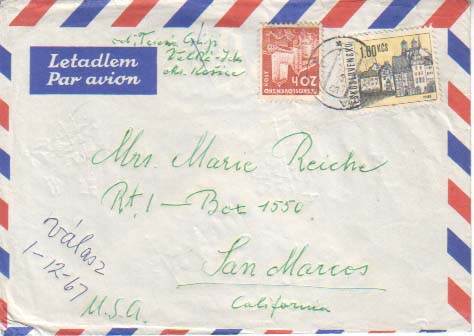 Letadlem
Par avion
20 h
ČESKOSLOVENSKO
1,60 Kčs
ČESKOSLOVENSKO
Mrs. Marie Reiche
Rt. 1 - Box 1550
San Marcos
California
U.S.A.
Válasz
1-12-67